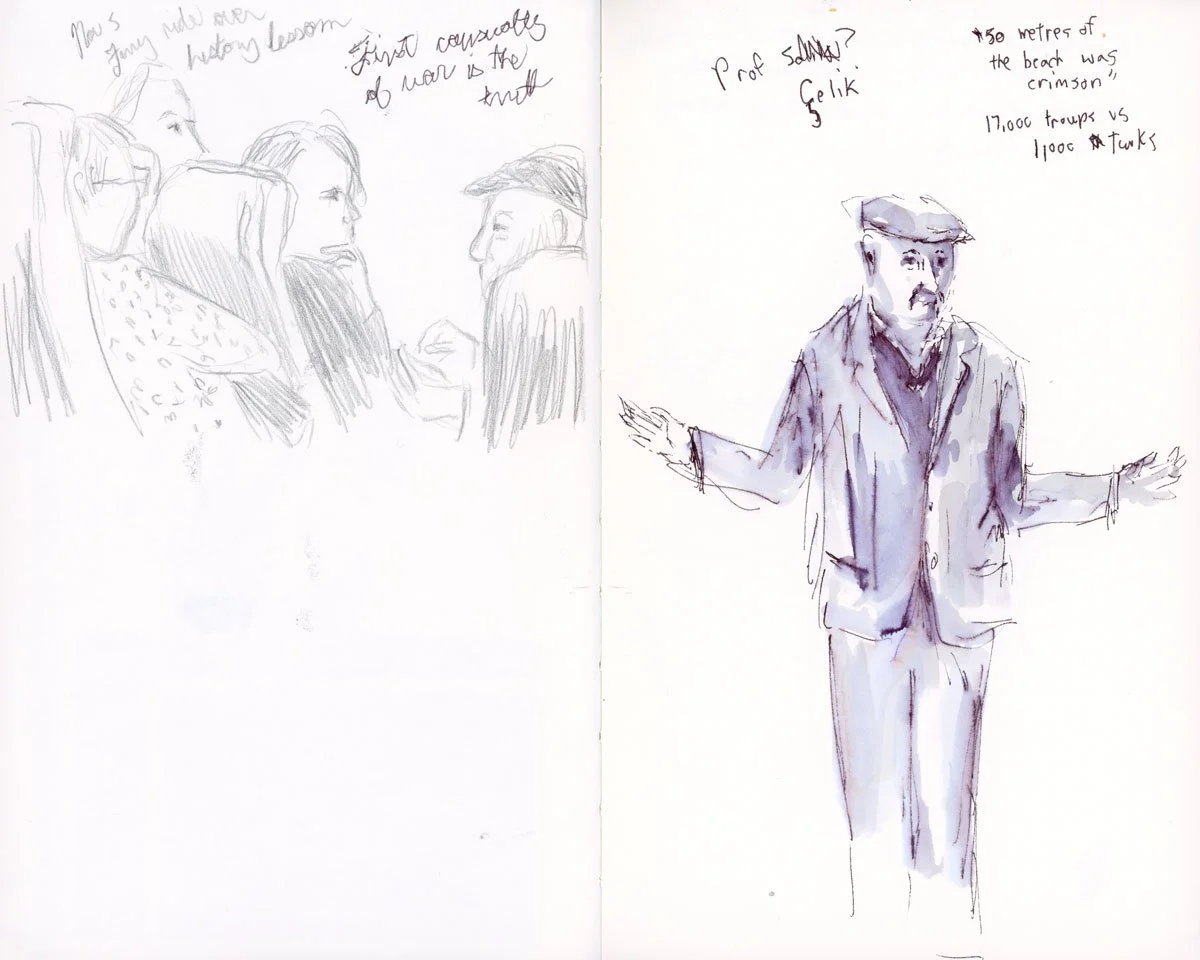 Nov 5
Ferry ride over
history lesson
First casually
of war is the
truth
Prof ?
Çelik
"50 metres of
the beach was
crimson"
17,000 troups vs
1,000 turks